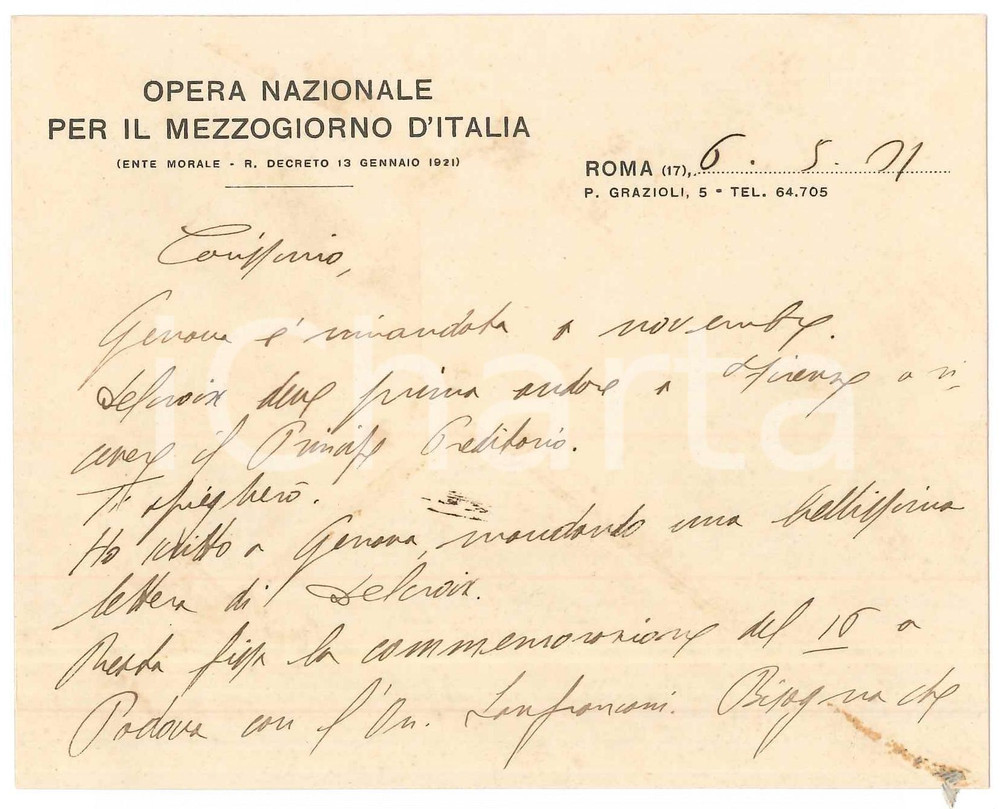 OPERA NAZIONALE
PER IL MEZZOGIORNO D'ITALIA
(ENTE MORALE - R. DECRETO 13 GENNAIO 1921)
ROMA (17), 6. 5. 31
P. GRAZIOLI, 5 - TEL. 64.705
Carissimo,
Genova è rimandata a novembre.
Delcroix deve prima andare a Firenze a ri-
cevere il Principe Ereditario.
Ti spiegherò.
Ho scritto a Genova, mandando una bellissima
lettera di Delcroix.
Resta fissa la commemorazione del 16 a
Padova con l'On. Lanfranconi. Bisogna che
iCharta